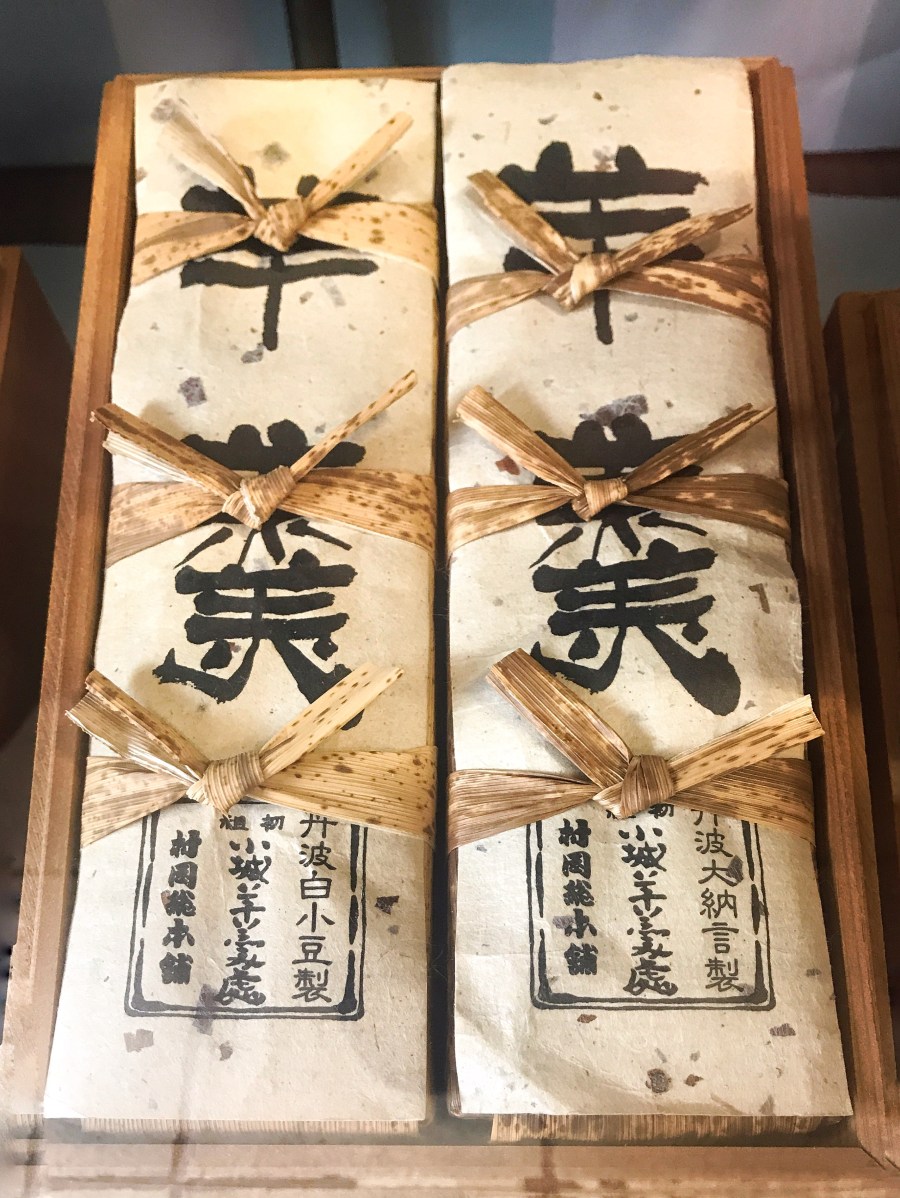 羊羹
丹波白小豆製
初祖
小城羊羹處
村岡総本舗
羊羹
丹波大納言製
初祖
小城羊羹處
村岡総本舗